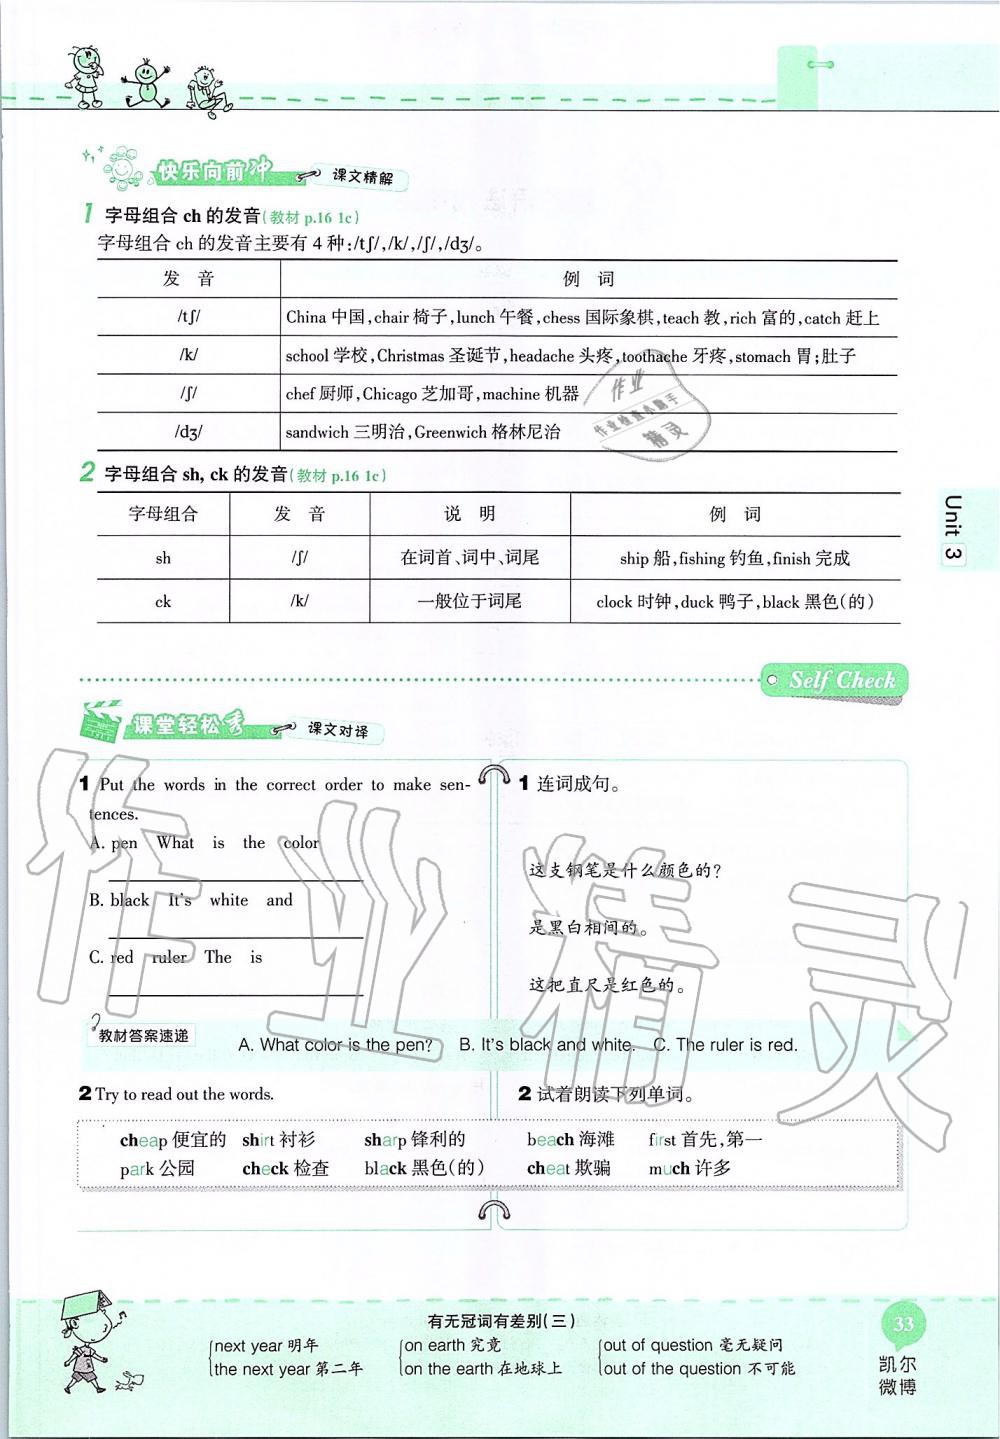 快乐向前冲 课文精解
1 字母组合 ch 的发音(教材 p.16 1c)
字母组合 ch 的发音主要有 4 种:/tʃ/,/k/,/ʃ/,/dʒ/。
发 音 例 词
/tʃ/ China 中国,chair 椅子,lunch 午餐,chess 国际象棋,teach 教,rich 富的,catch 赶上
/k/ school 学校,Christmas 圣诞节,headache 头疼,toothache 牙疼,stomach 胃;肚子
/ʃ/ chef 厨师,Chicago 芝加哥,machine 机器
/dʒ/ sandwich 三明治,Greenwich 格林尼治
作业
作业检查小助手
精灵
2 字母组合 sh, ck 的发音(教材 p.16 1c)
字母组合 发 音 说 明 例 词
sh /ʃ/ 在词首、词中、词尾 ship 船,fishing 钓鱼,finish 完成
ck /k/ 一般位于词尾 clock 时钟,duck 鸭子,black 黑色(的)
Unit 3
Self Check
课堂轻松秀 课文对译
1 Put the words in the correct order to make sen-
tences.
A. pen What is the color
B. black It's white and
C. red ruler The is
1 连词成句。
这支钢笔是什么颜色的?
是黑白相间的。
这把直尺是红色的。
作业精灵
教材答案速递
A. What color is the pen? B. It's black and white. C. The ruler is red.
2 Try to read out the words.
2 试着朗读下列单词。
cheap 便宜的 shirt 衬衫 sharp 锋利的 beach 海滩 first 首先,第一
park 公园 check 检查 black 黑色(的) cheat 欺骗 much 许多
有无冠词有差别(三)
next year 明年 on earth 究竟 out of question 毫无疑问
the next year 第二年 on the earth 在地球上 out of the question 不可能
33
凯尔
微博